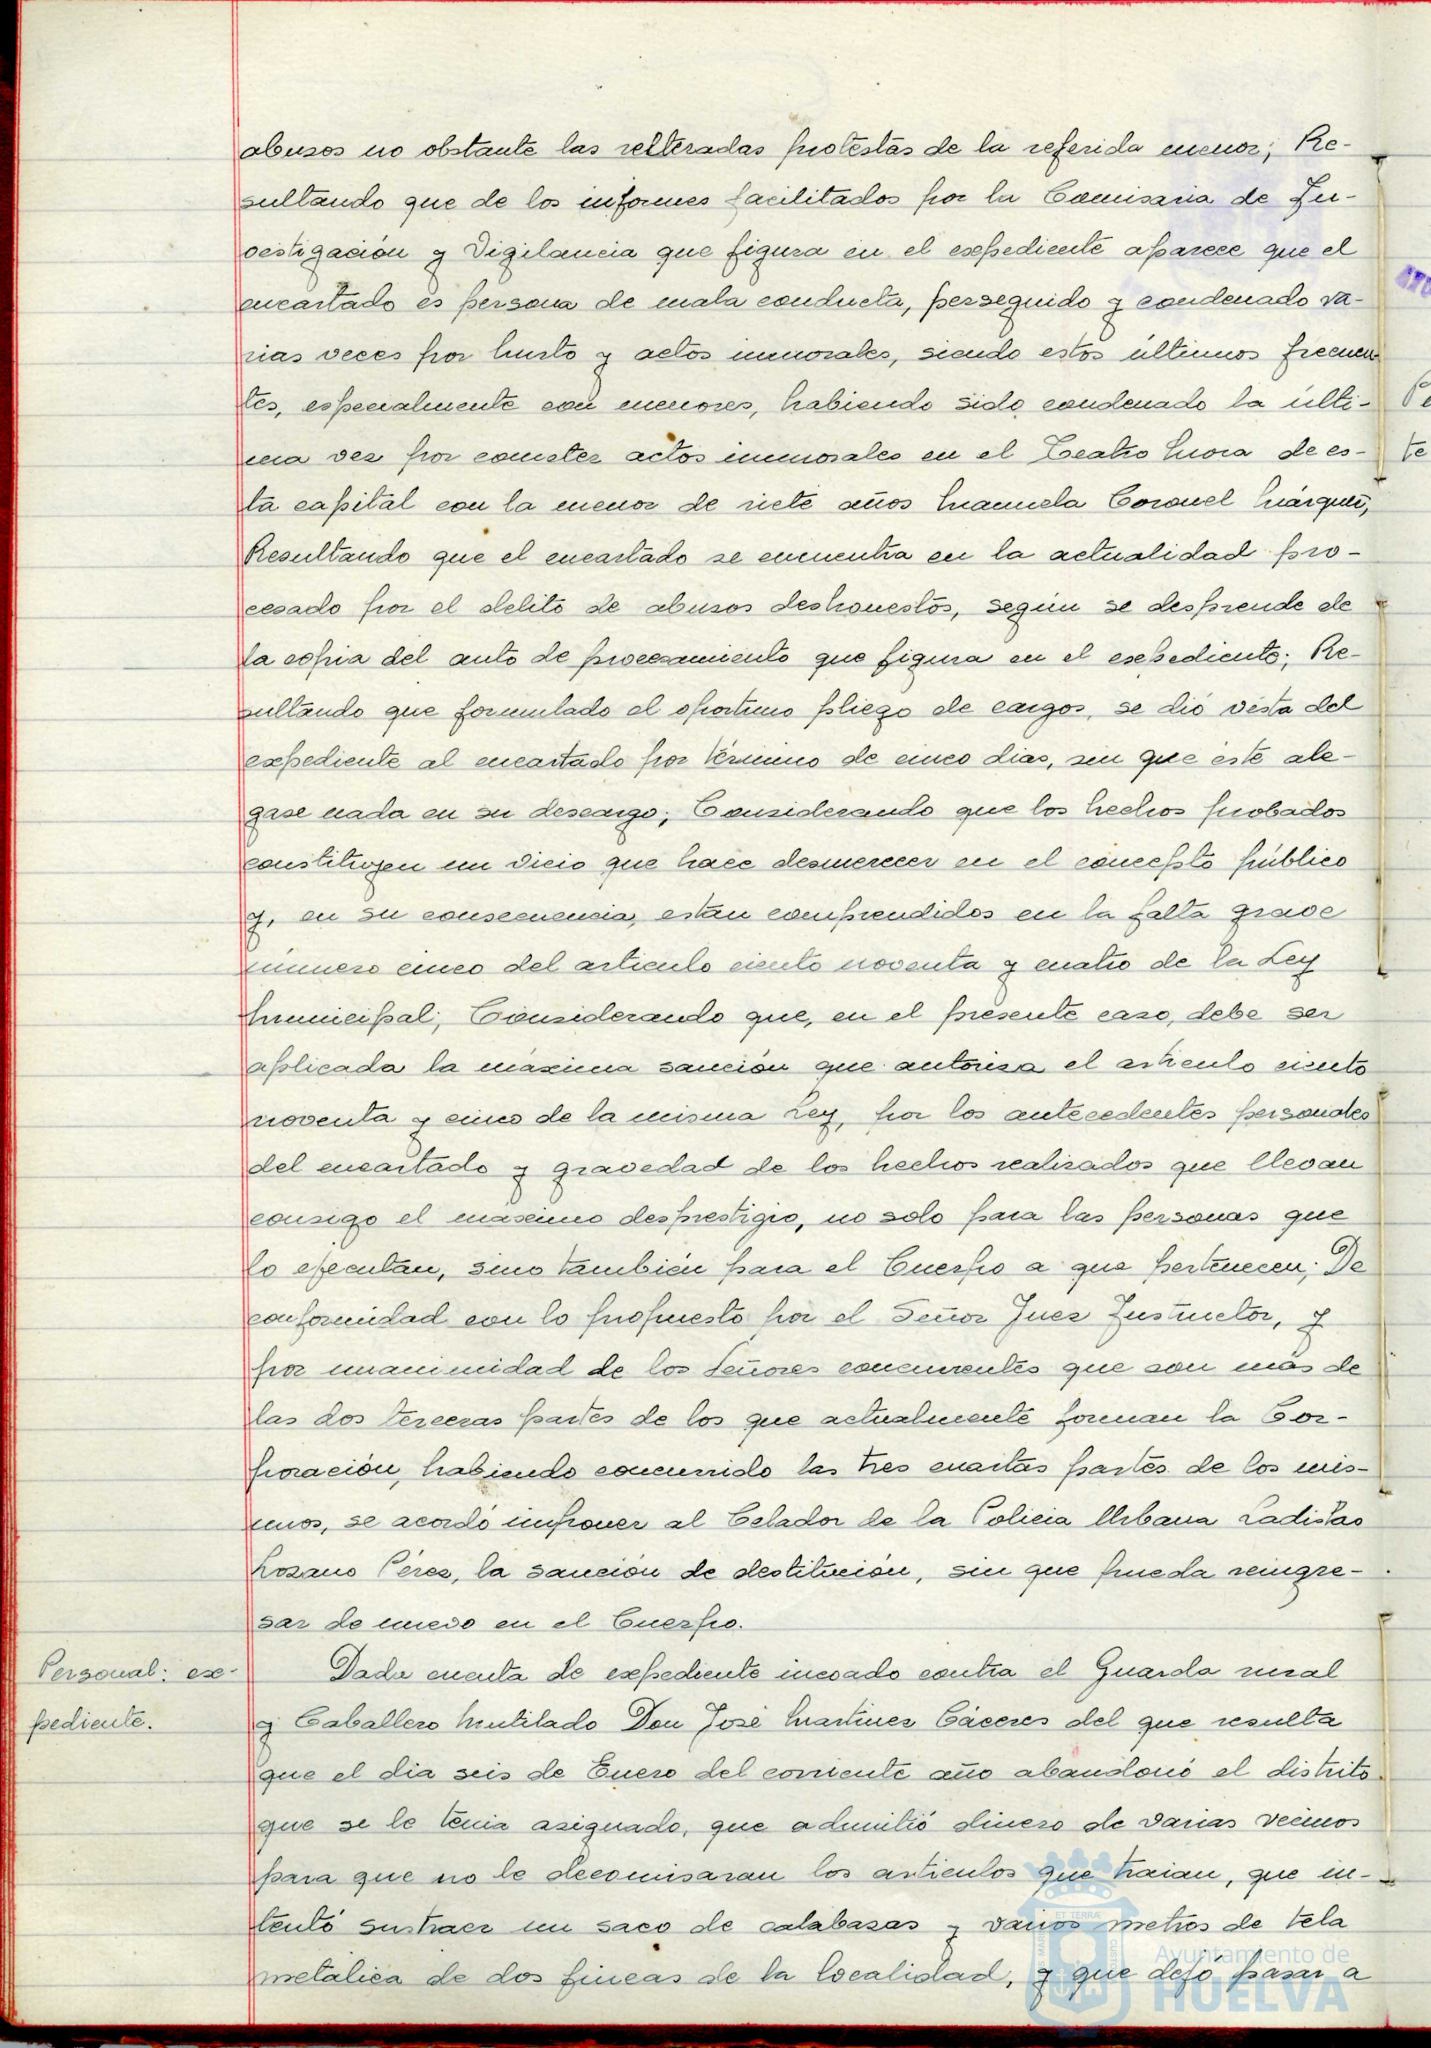 abusos no obstante las reiteradas protestas de la referida menor; Re-
sultando que de los informes facilitados por la Comisaria de In-
vestigación y Vigilancia que figura en el expediente aparece que el
encartado es persona de mala conducta, perseguido y condenado va-
rias veces por hurto y actos inmorales, siendo estos últimos frecuen-
tes, especialmente con menores, habiendo sido condenado la últi-
ma vez por cometer actos inmorales en el Teatro Mora de es-
ta capital con la menor de siete años Manuela Coronel Márquez;
Resultando que el encartado se encuentra en la actualidad pro-
cesado por el delito de abusos deshonestos, según se desprende de
la copia del auto de procesamiento que figura en el expediente; Re-
sultando que formulado el oportuno pliego de cargos, se dió vista del
expediente al encartado por término de cinco dias, sin que éste ale-
gase nada en su descargo; Considerando que los hechos probados
constituyen un vicio que hace desmerecer en el concepto público
y, en su consecuencia, están comprendidos en la falta grave
número cinco del articulo ciento noventa y cuatro de la Ley
Municipal; Considerando que, en el presente caso, debe ser
aplicada la máxima sanción que autoriza el articulo ciento
noventa y cinco de la misma Ley, por los antecedentes personales
del encartado y gravedad de los hechos realizados que llevan
consigo el máximo desprestigio, no solo para las personas que
lo ejecutan, sino también para el Cuerpo a que pertenecen; De
conformidad con lo propuesto por el Señor Juez Instructor, y
por unanimidad de los Señores concurrentes que son más de
las dos terceras partes de los que actualmente forman la Cor-
poración, habiendo concurrido las tres cuartas partes de los mis-
mos, se acordó imponer al Celador de la Policia Urbana Ladislao
Lozano Pérez, la sanción de destitución, sin que pueda reingre-
sar de nuevo en el Cuerpo.
Personal: ex-
pediente.
Dada cuenta de expediente incoado contra el Guarda rural
y Caballero Mutilado Don José Martinez Cáceres del que resulta
que el dia seis de Enero del corriente año abandonó el distrito
que se le tenia asignado, que admitió dinero de varias vecinos
para que no le decomisaran los articulos que traian, que in-
tentó sustraer un saco de calabazas y varios metros de tela
metálica de dos fincas de la localidad, y que dejó pasar a
Pe
te
ET TERRÆ
Ayuntamiento de
HUELVA